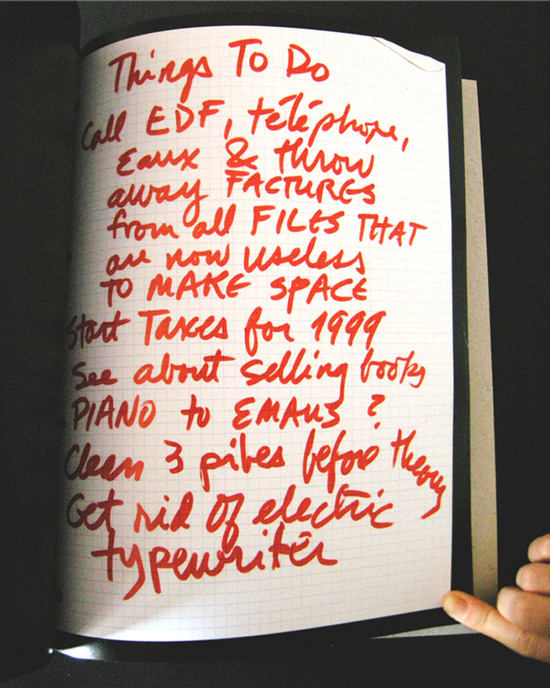 Things To Do
Call EDF, téléphone,
Eaux & throw
away FACTURES
from all FILES THAT
are now useless
TO MAKE SPACE
Start Taxes for 1999
See about selling books
PIANO to EMAUS ?
Clean 3 piles before they
Get rid of electric
typewriter